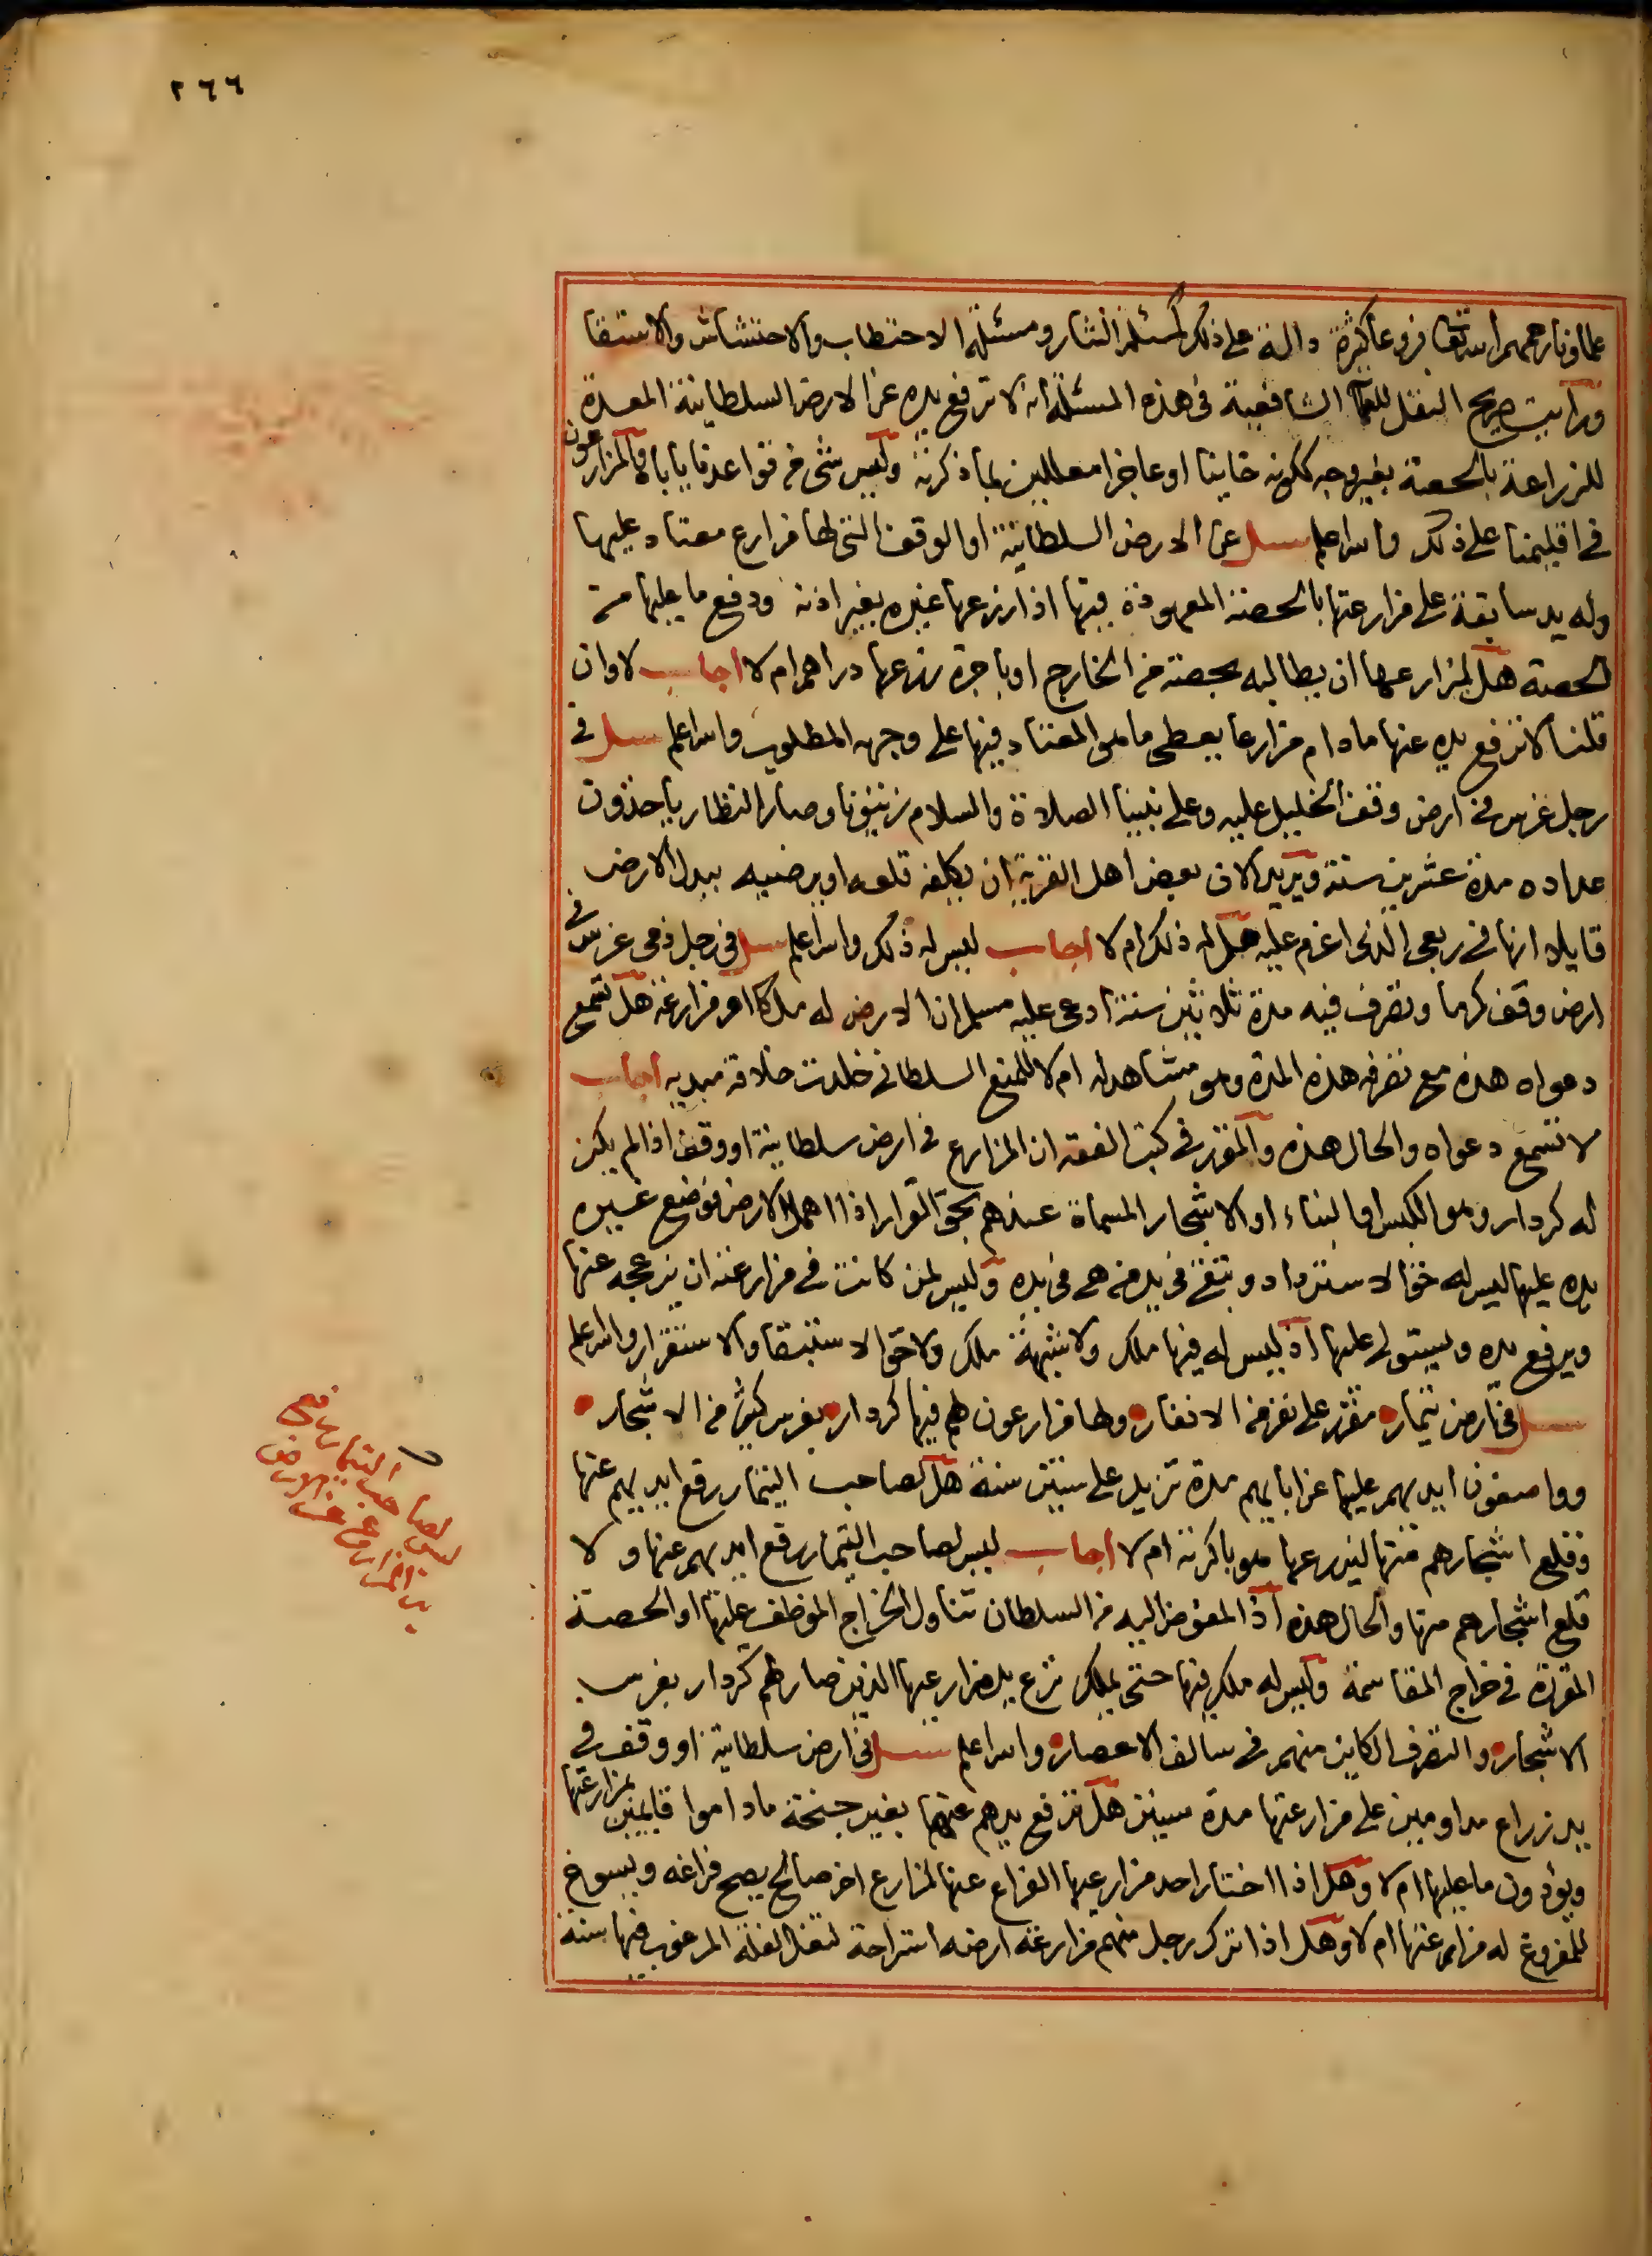 ٢٦٦
علماؤنا رحمهم الله تعالى فروعا كثيرة دالة على ذلك كمسئلة النثار ومسئلة الاحتطاب والاحتشاش والاستقا
ورايت صريح النقل للعلما الشافعية فى هذه المسئلة انه لا ترفع يده عن الارض السلطانية المعدة
للزراعة بالحصة بغير وجه ككونه خاينا او عاجزا معللين بما ذكرنه وليس شى من قواعدنا ياباه والمزارعون
فى اقليمنا على ذلك والله اعلم سئل عن الارض السلطانية او الوقف التى لها مزارع معتاد عليها
وله يد سابقة على مزارعتها بالحصة المعهودة فيها اذا زرعها غيره بغير اذنه ودفع ما عليها من
الحصة هل لمزارعها ان يطالبه بحصة من الخارج او باجرة زرعها دراهم ام لا اجاب لا وان
قلنا لا ترفع يده عنها مادام مزارعا يعطى ما هو المعتاد فيها على وجهه المطلوب والله اعلم سئل فى
رجل غرس فى ارض وقف الخليل عليه وعلى نبينا الصلاة والسلام زيتونا وصار النظار ياخذون
عداده مدة عشرين سنة ويريد الان بعض اهل القرية ان يكلفه قلعه او يرضيه ببدل الارض
قايلا انها فى ربعى الذى اغرم عليه هل له ذلك ام لا اجاب ليس له ذلك والله اعلم سئل فى رجل ذمى غرس فى
ارض وقف كرما وتصرف فيه مدة ثلاثين سنة ادعى عليه مسلم ان الارض له ملكا او مزارعة هل تسمع
دعواه هذه مع تصرفه هذه المدة وهو مشاهد له ام لا للمنع السلطانى خلدت خلافة مبديه اجاب
لا تسمع دعواه والحال هذه والمقرر فى كتب الفقه ان المزارع فى ارض سلطانية او وقف اذا لم يكن
له كردار وهو الكبس او البناء او الاشجار المسماة عندهم بحق القرار اذا اهمل الارض فوضع غيره
يده عليها ليس له حق الاسترداد وتبقى فى يد من هى فى يده وليس لمن كانت فى مزارعته ان يزعجه عنها
ويرفع يده ويستولى عليها اذ ليس له فيها ملك ولا شبهة ملك ولا حق الاستبقا والاستقرار والله اعلم
سئل فى ارض تيمار مقرر على نفر من الانفار ولها مزارعون لهم فيها كردار بغرس كثير من الاشجار
وواضعون ايديهم عليها عن ابايهم مدة تزيد على ستين سنة هل لصاحب التيمار رفع ايديهم عنها
وقلع اشجارهم منها ليزرعها هو باكرته ام لا اجاب ليس لصاحب التيمار رفع ايديهم عنها ولا
قلع اشجارهم منها والحال هذه اذ المفوض اليه من السلطان تناول الخراج الموظف عليها او الحصة
المقررة فى خراج المقاسمة وليس له ملك فيها حتى يملك نزع يد مزارعيها الذين صار لهم كردار بغرس
الاشجار والتصرف الكاين منهم فى سالف الاعصار والله اعلم سئل فى ارض سلطانية او وقف فى
يد زراع مداومين على مزارعتها مدة سنين هل ترفع يدهم عنها بغير جنحة ماداموا قايمين بمزارعتها
ويؤدون ما عليها ام لا وهل اذا اختار احد مزارعيها الفراغ عنها لمزارع اخر صالح يصح فراغه ويسوغ
للمفروغ له مزارعتها ام لا وهل اذا ترك رجل منهم مزارعة ارضه استراحة لتغل الغلة المرغوب فيها سنة
ليس لصاحب التيمار رفع
يد المزارع عن الارض